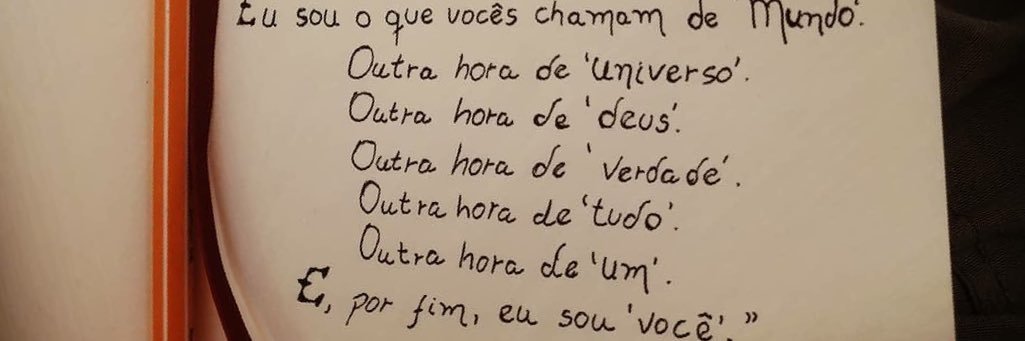 Eu sou o que vocês chamam de 'Mundo'.
Outra hora de 'universo'.
Outra hora de 'deus'.
Outra hora de 'verdade'.
Outra hora de 'tudo'.
Outra hora de 'um'.
E, por fim, eu sou 'você'."